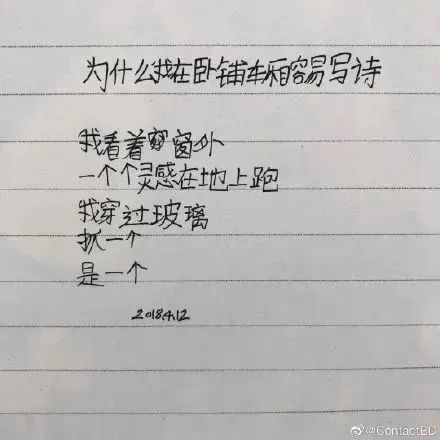 为什么我在卧铺车厢容易写诗
我看着窗外
一个个灵感在地上跑
我穿过玻璃
抓一个
是一个
2018.4.12
@ContactBD